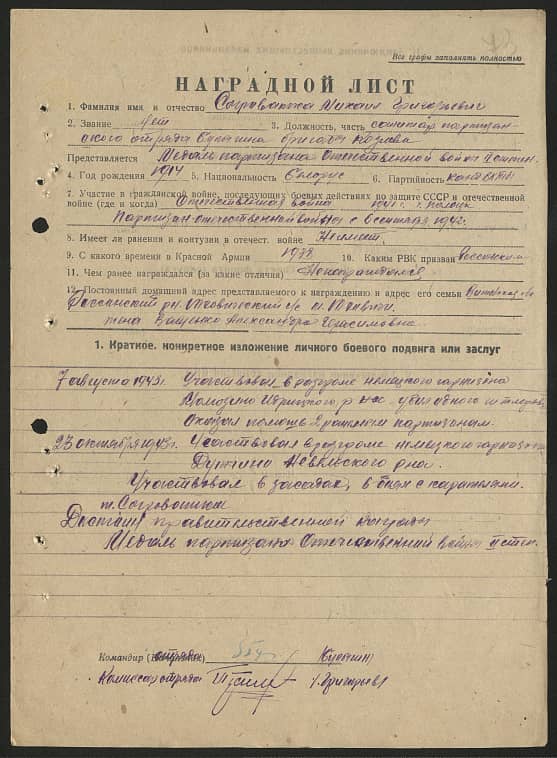 Все графы заполнять полностью
НАГРАДНОЙ ЛИСТ
1. Фамилия имя и отчество Михаил Григорьевич
2. Звание нет 3. Должность, часть санитар партизан-
ского отряда бригады
Представляется Медаль партизана Отечественной войны
4. Год рождения 1914 5. Национальность Белорус 6. Партийность
7. Участие в гражданской войне, последующих боевых действиях по защите СССР и отечественной
войне (где и когда) Отечественная война 1941 г.
Партизан отечественной войны с 1942.
8. Имеет ли ранения и контузии в отечест. войне Неимеет.
9. С какого времени в Красной Армии 1938 10. Каким РВК призван Россонским
11. Чем ранее награждался (за какие отличия) Ненаграждался
12. Постоянный домашний адрес представляемого к награждению и адрес его семьи
Россонский с/с
жена Александра Герасимовна
1. Краткое, конкретное изложение личного боевого подвига или заслуг
7 августа 1943г. Участвовал в разгроме немецкого гарнизона
Идрицкого р-на убил одного
Оказал помощь 2 раненым партизанам.
23 октября 1943г. Участвовал в разгроме немецкого гарнизона
Невельского р-на.
Участвовал в засадах, в боях с карателями.
т.
Достоин правительственной награды
Медаль партизана Отечественной войны II степ.
Командир отряда
Комиссар отряда /Григорьев/